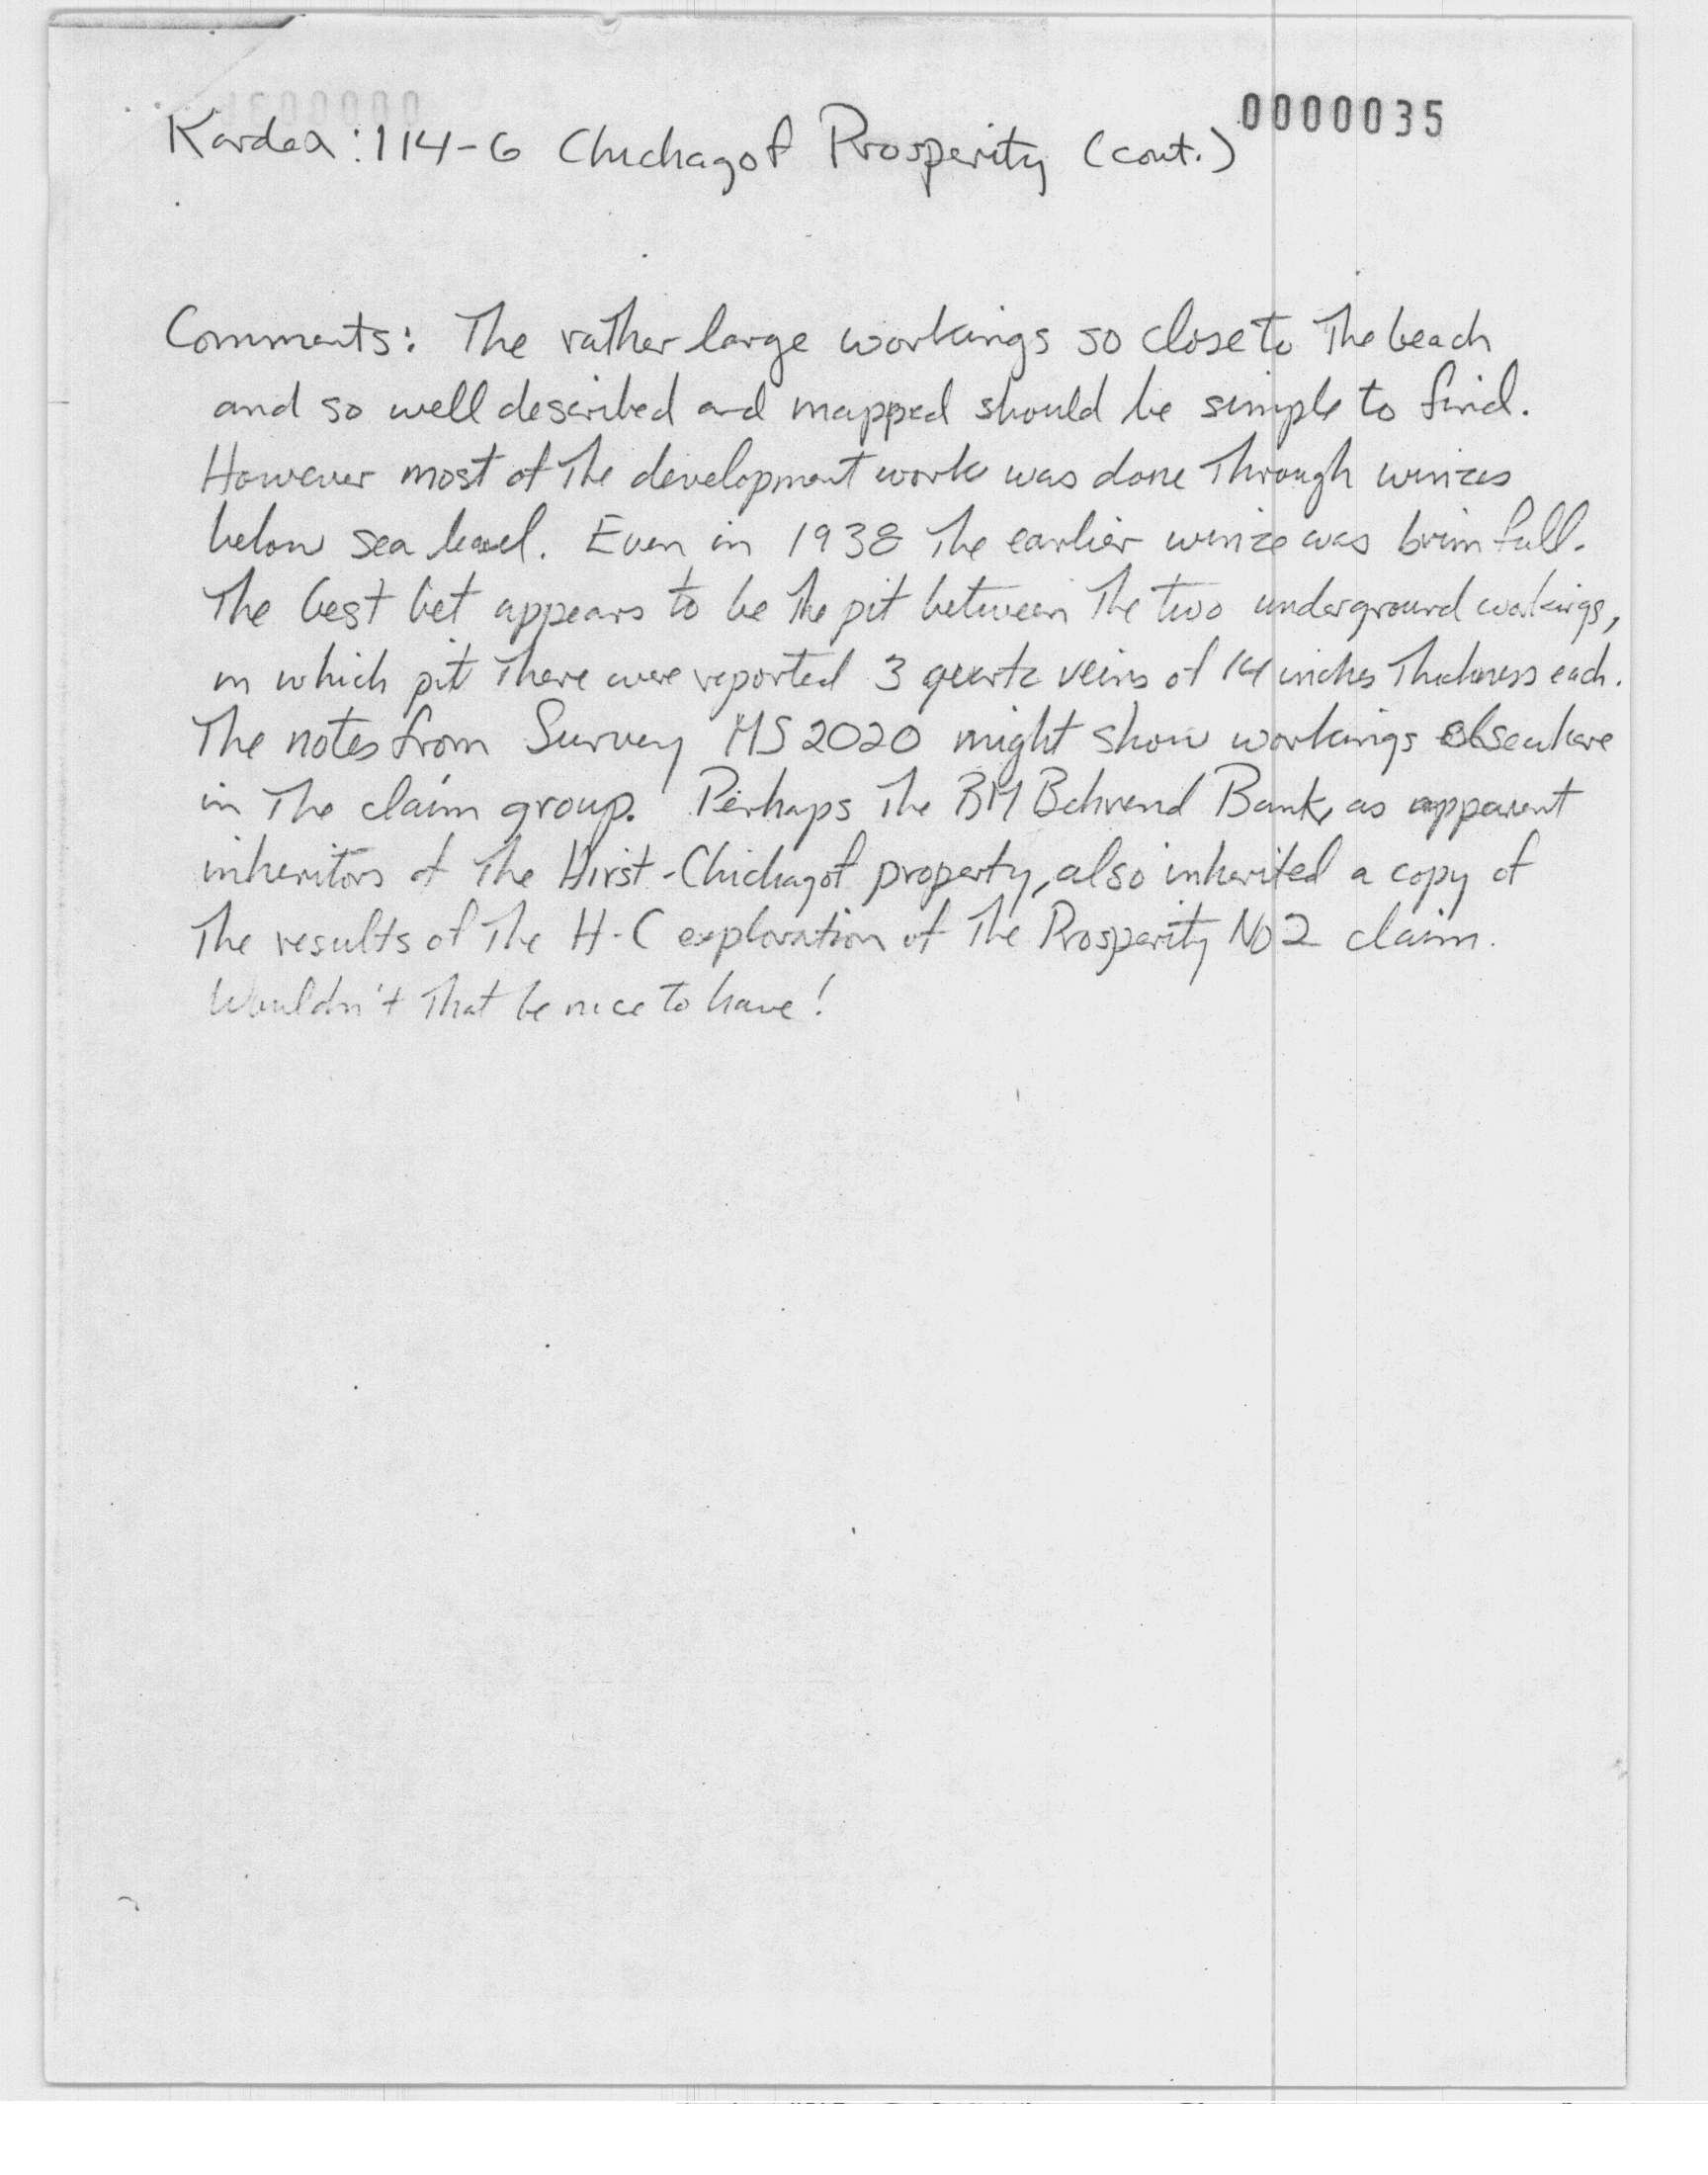 0000035
Kardex: 114-6 Chichagof Prosperity (cont.)
Comments: The rather large workings so close to The beach
and so well described and mapped should be simple to find.
However most of The development work was done Through winzes
below sea level. Even in 1938 The earlier winze was brim full.
The best bet appears to be The pit between The two underground workings,
in which pit There were reported 3 quartz veins of 14 inches Thickness each.
The notes from Survey MS 2020 might show workings elsewhere
in The claim group. Perhaps The BM Behrend Bank, as apparent
inheritors of The Hirst-Chichagof property, also inherited a copy of
The results of The H-C exploration of The Prosperity No 2 claim.
Wouldn't That be nice to have!